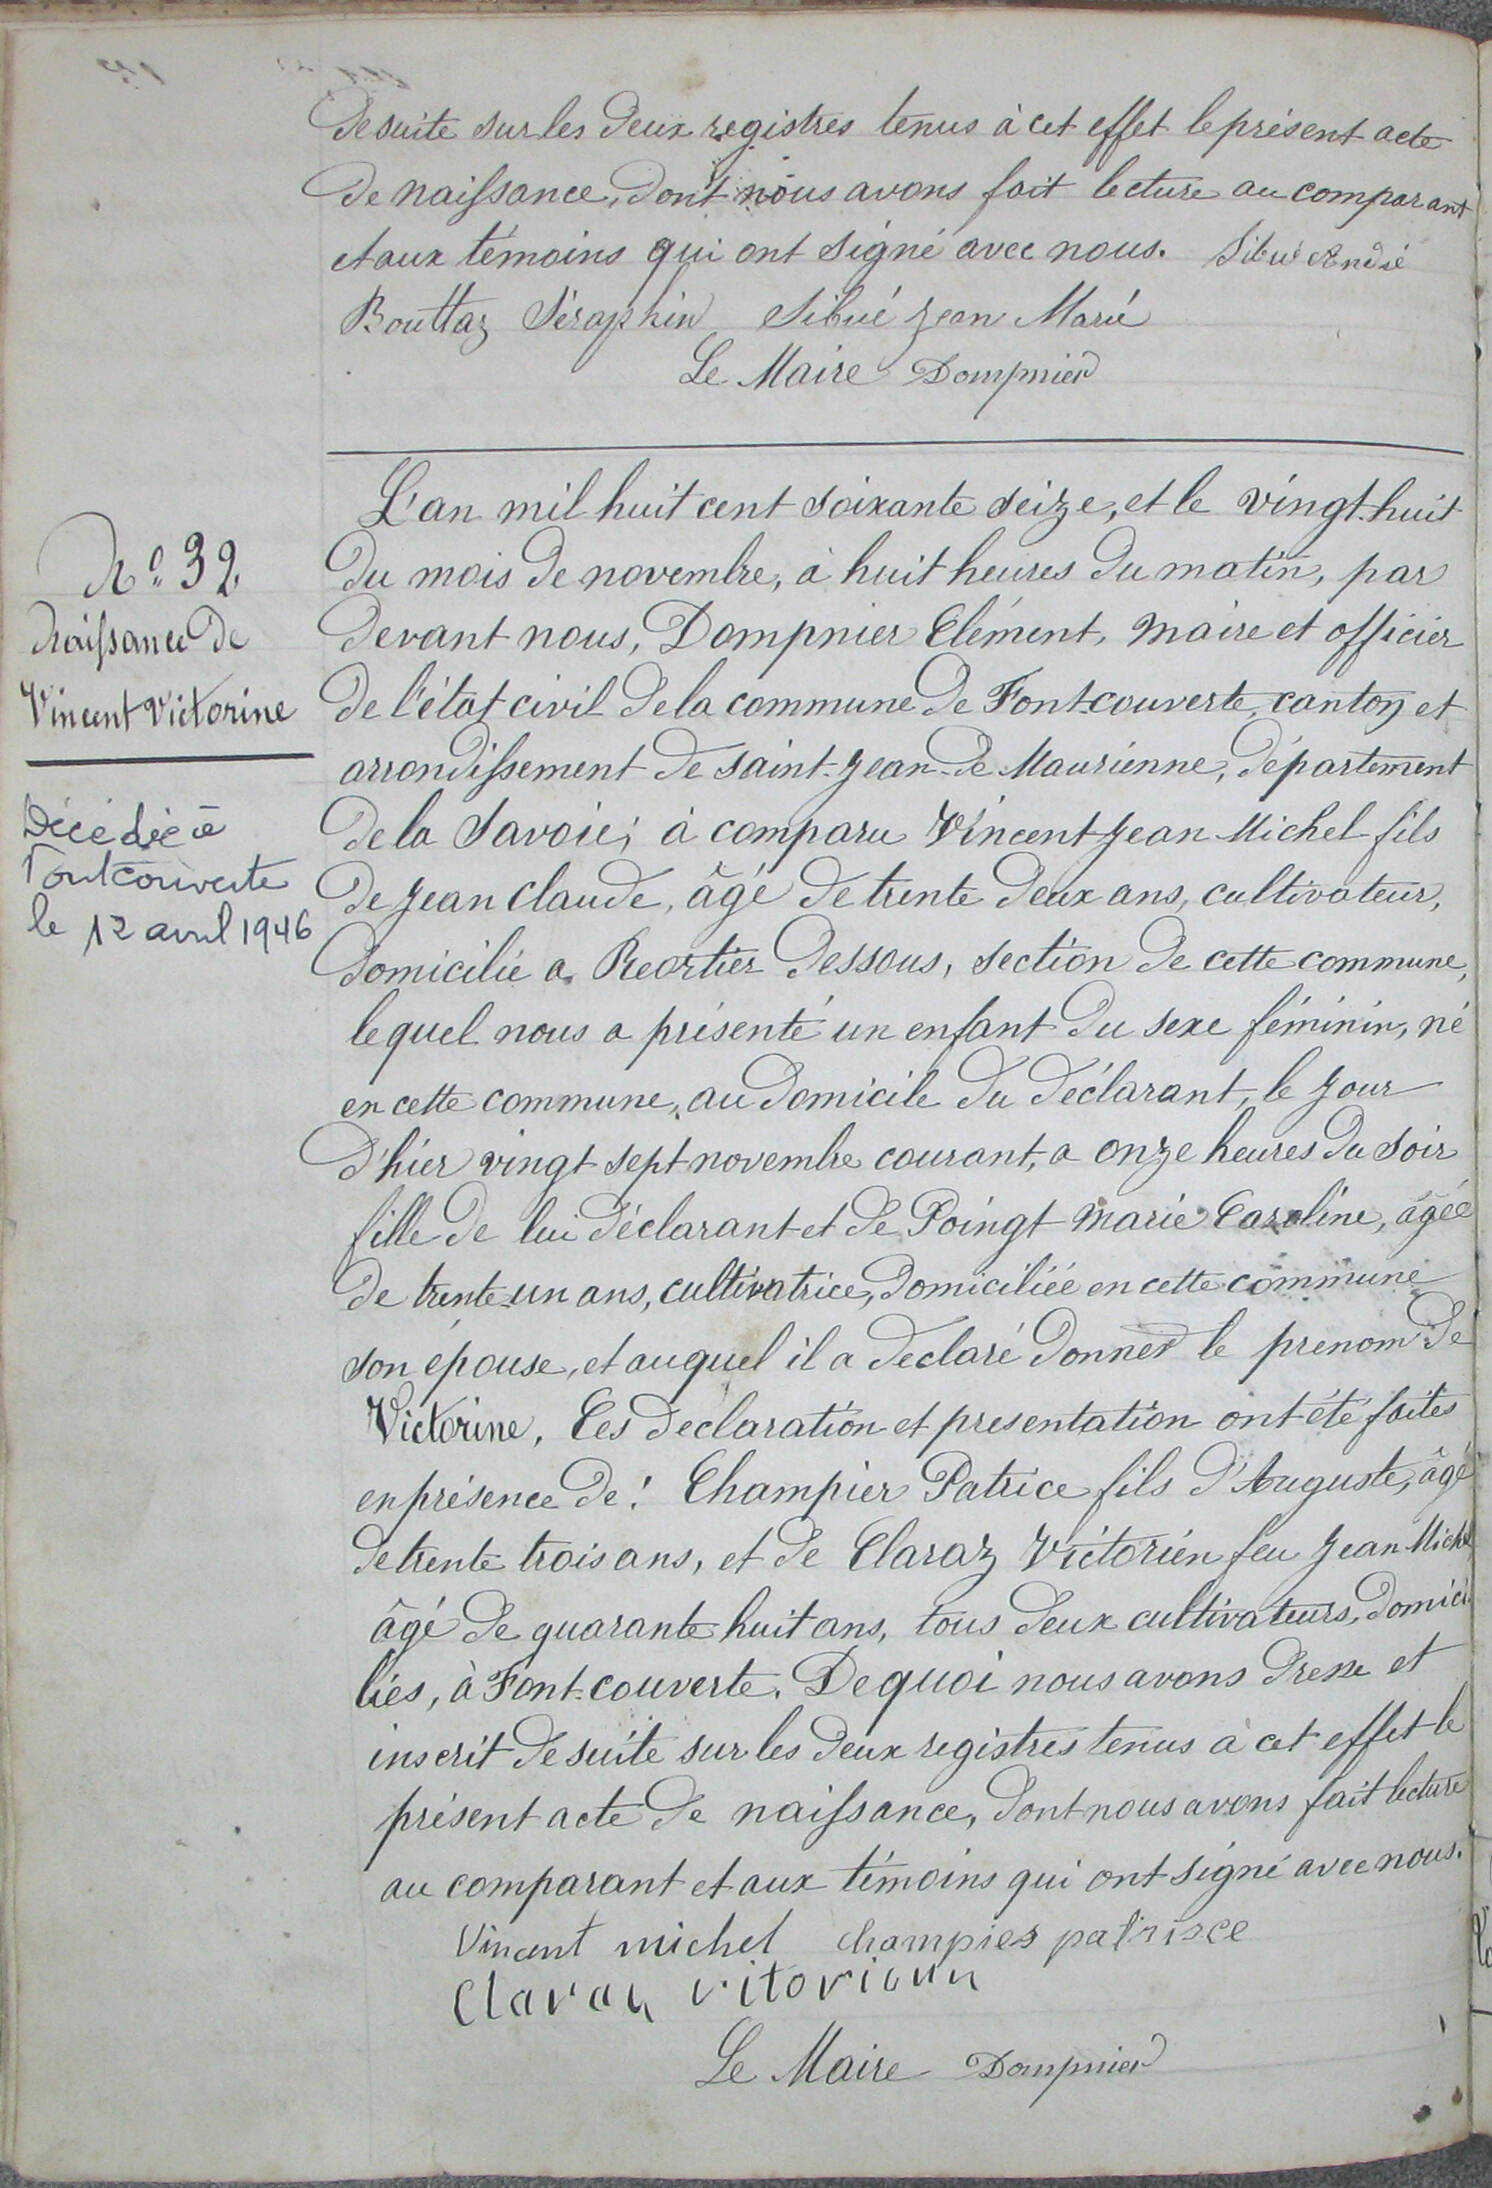 de suite sur les deux registres tenus à cet effet le présent acte
de naissance, dont nous avons fait lecture au comparant
et aux témoins qui ont signé avec nous. Sibué André
Bouttaz Séraphin Sibué Jean Marie
Le Maire Dompnier
N.° 32.
Naissance de
Vincent Victorine
Décédée à
Fontcouverte
le 12 avril 1946
L'an mil huit cent soixante seize, et le vingt-huit
du mois de novembre, à huit heures du matin, par
devant nous, Dompnier Clément, maire et officier
de l'état civil de la commune de Font-couverte, canton et
arrondissement de Saint-Jean-de Maurienne, département
de la Savoie; à comparu Vincent Jean Michel fils
de Jean Claude, âgé de trente deux ans, cultivateur,
domicilié a Reortier dessous, section de cette commune,
lequel nous a présenté un enfant du sexe féminin, né
en cette commune, au domicile du déclarant, le jour
d'hier vingt sept novembre courant, a onze heures du soir
fille de lui déclarant et de Poingt Marie Caroline, âgée
de trente-un ans, cultivatrice, domiciliée en cette commune
son épouse, et auquel il a declaré donner le prenom de
Victorine. Ces declaration et presentation ont été faites
en présence de: Champier Patrice fils d'Auguste, âgé
de trente trois ans, et de Claraz Victorien feu Jean Michel
âgé de quarante huit ans, tous deux cultivateurs, domici
liés, à Font-couverte. De quoi nous avons dresse et
inscrit de suite sur les deux registres tenus à cet effet le
présent acte de naissance, dont nous avons fait lecture
au comparant et aux témoins qui ont signé avec nous.
Vincent michel champier patrisce
Claraz
Le Maire Dompnier